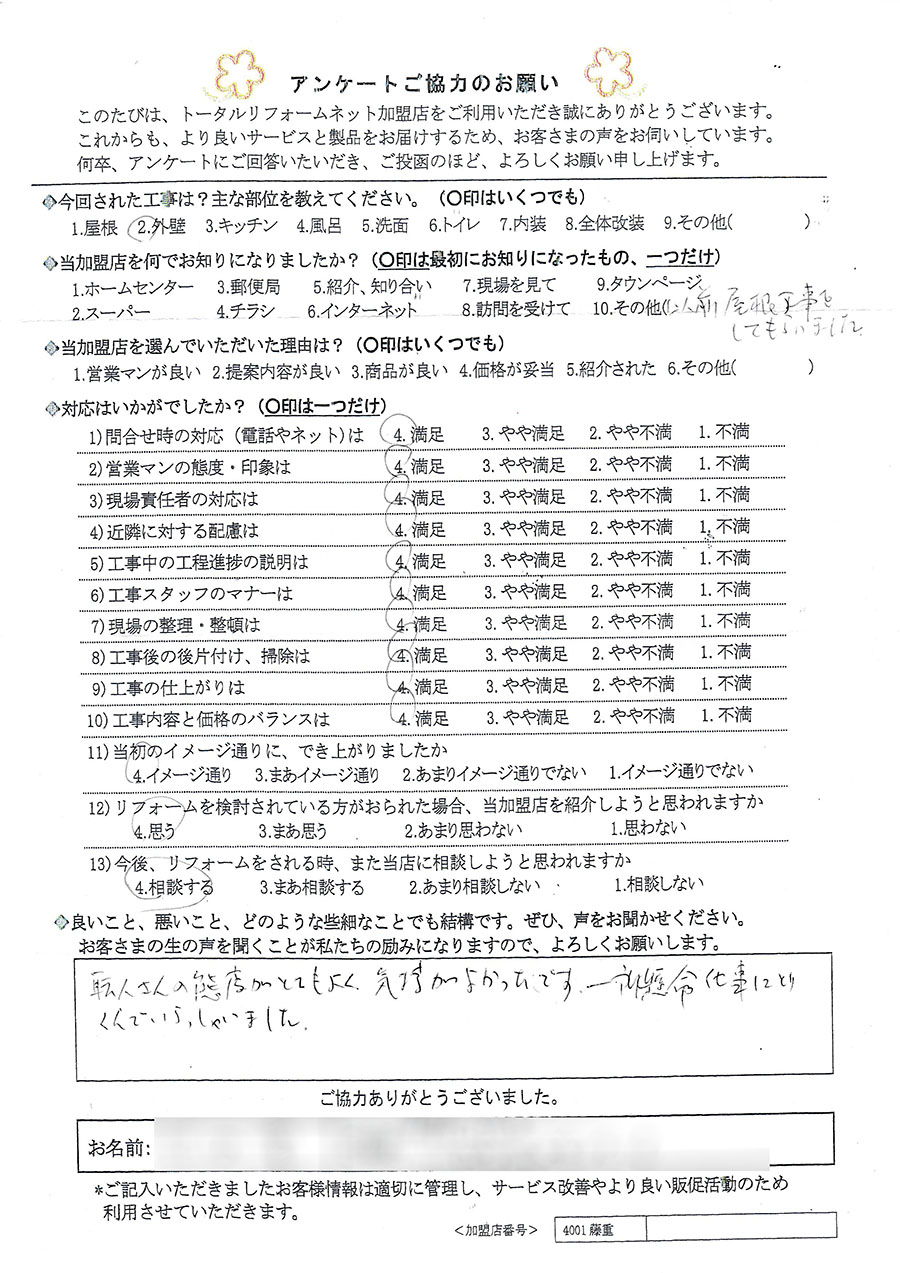 アンケートご協力のお願い
このたびは、トータルリフォームネット加盟店をご利用いただき誠にありがとうございます。
これからも、より良いサービスと製品をお届けするため、お客さまの声をお伺いしています。
何卒、アンケートにご回答いたいだき、ご投函のほど、よろしくお願い申し上げます。
今回された工事は？主な部位を教えてください。（〇印はいくつでも）
1.屋根 2.外壁 3.キッチン 4.風呂 5.洗面 6.トイレ 7.内装 8.全体改装 9.その他( )
当加盟店を何でお知りになりましたか？（〇印は最初にお知りになったもの、一つだけ）
1.ホームセンター 3.郵便局 5.紹介、知り合い 7.現場を見て 9.タウンページ
2.スーパー 4.チラシ 6.インターネット 8.訪問を受けて 10.その他(以前 屋根工事を
してもらいました
当加盟店を選んでいただいた理由は？（〇印はいくつでも）
1.営業マンが良い 2.提案内容が良い 3.商品が良い 4.価格が妥当 5.紹介された 6.その他( )
対応はいかがでしたか？（〇印は一つだけ）
1)問合せ時の対応（電話やネット)は 4.満足 3.やや満足 2.やや不満 1.不満
2)営業マンの態度・印象は 4.満足 3.やや満足 2.やや不満 1.不満
3)現場責任者の対応は 4.満足 3.やや満足 2.やや不満 1.不満
4)近隣に対する配慮は 4.満足 3.やや満足 2.やや不満 1.不満
5)工事中の工程進捗の説明は 4.満足 3.やや満足 2.やや不満 1.不満
6)工事スタッフのマナーは 4.満足 3.やや満足 2.やや不満 1.不満
7)現場の整理・整頓は 4.満足 3.やや満足 2.やや不満 1.不満
8)工事後の後片付け、掃除は 4.満足 3.やや満足 2.やや不満 1.不満
9)工事の仕上がりは 4.満足 3.やや満足 2.やや不満 1.不満
10)工事内容と価格のバランスは 4.満足 3.やや満足 2.やや不満 1.不満
11)当初のイメージ通りに、でき上がりましたか
4.イメージ通り 3.まあイメージ通り 2.あまりイメージ通りでない 1.イメージ通りでない
12)リフォームを検討されている方がおられた場合、当加盟店を紹介しようと思われますか
4.思う 3.まあ思う 2.あまり思わない 1.思わない
13)今後、リフォームをされる時、また当店に相談しようと思われますか
4.相談する 3.まあ相談する 2.あまり相談しない 1.相談しない
良いこと、悪いこと、どのような些細なことでも結構です。ぜひ、声をお聞かせください。
お客さまの生の声を聞くことが私たちの励みになりますので、よろしくお願いします。
職人さんの態度がとてもよく、気持がよかったです。一所懸命仕事にとり
くんでいらっしゃいました。
ご協力ありがとうございました。
お名前:
*ご記入いただきましたお客様情報は適切に管理し、サービス改善やより良い販促活動のため
利用させていただきます。
<加盟店番号> 4001藤重